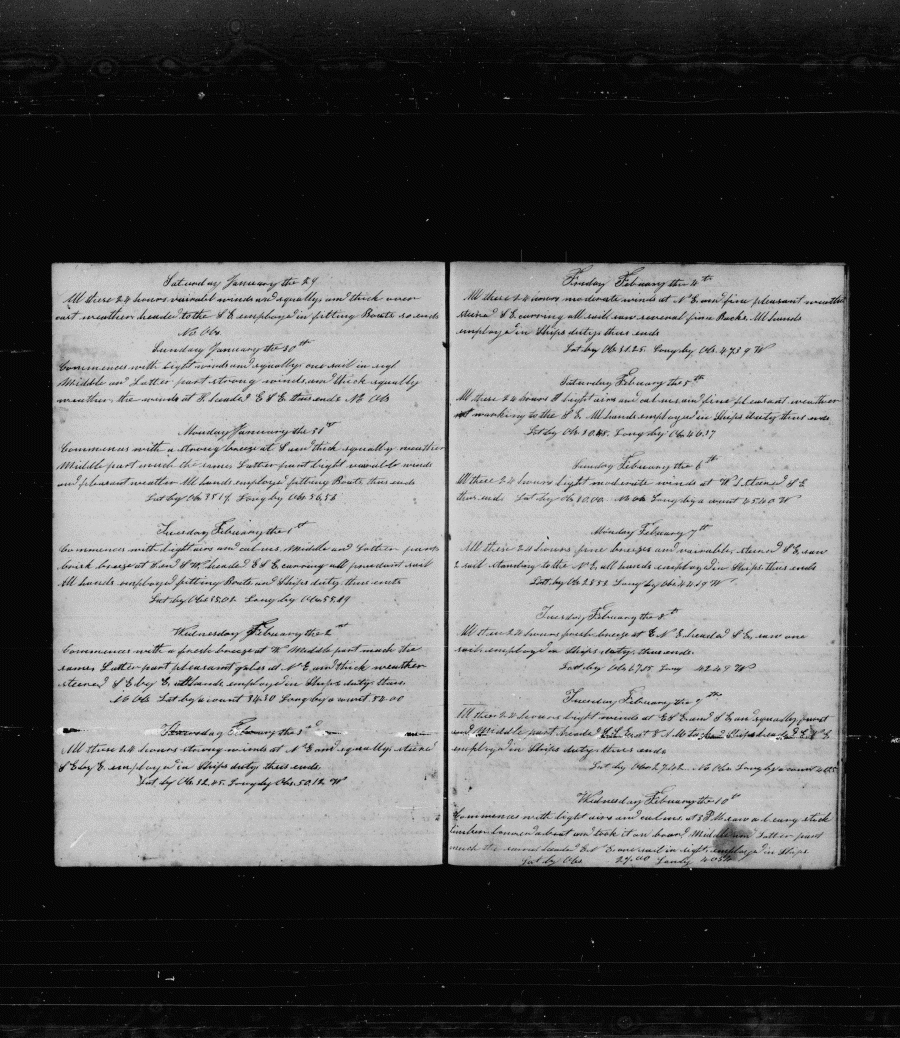 Saturday January the 29
All these 24 hours variabel winds and squally and thick over
cast weather headed to the S E employed in fitting Boats so ends
No Obs
Sunday January the 30th
Commences with light winds and squally one sail in sigt
Middle and Latter part strong winds and thick squally
weather the winds at N headed E S E thus ends No Obs
Monday January the 31st
Commences with a strong breeze at S and thick squally weather
Middle part much the same Latter part light variable winds
and pleasant weather All hands employed fitting Boats thus ends
Lat by Obs 35.19 Long by Obs 56.58
Tuesday February the 1st
Commences with light airs and calms Middle and Latter parts
brisk breeze at S and S W headed E S E carrying all prudent sail
All hands employed fitting Boats and Ships duty thus ends
Lat by Obs 35.02 Long by Obs 55.49
Wednesday February the 2nd
Commences with a fresh breeze at W Middle part much the
same Latter part pleasant gales at N E and thick weather
steered S E by E all hands employed in Ships duty thus
No Obs Lat by acount 34.30 Long by acount 52.00
February the 3d
All these 24 hours strong winds at N E and squally steered
S E by E employed in Ships duty thus ends
Lat by Obs 32.45 Long by Obs 50.12 W
Friday February the 4th
All these 24 hours moderate winds at N E and fine pleasant weather
steered S E carring all sail saw several fine Backs All hands
employed in Ships duty thus ends
Lat by Obs 31.25 Long by Obs 47.39 W
Saturday February the 5th
All these 24 hours light airs and calms and fine pleasant weather
working to the S E All hands employed in Ships duty thus ends
Lat by Obs 30.48 Long by Obs 46.17
Sunday February the 6th
All these 24 hours light moderate winds at W Steered S E
thus ends Lat by Obs 30.00 No Obs Long by acount 45.40 W
Monday February 7th
All these 24 hours fine breezes and variable steered S E saw
a sail standing to the N E all hands employed in Ships thus ends
Lat by Obs 28.52 Long by Obs 44.19 W
Tuesday February the 8th
All these 24 hours fresh breeze at E N E headed S E saw one
sail employed in Ships duty thus ends
Lat by Obs 67.05 Long 42.49 W
Tuesday February the 9th
All these 24 hours light winds at E S E and S E and squally
and Middle part headed at 8 A M Ship headed E N E
employed in Ships duty thus ends
Lat by Obs 27.42 No Obs Long by acount
Wednesday February the 10th
Commences with light airs and calms at 3 P M saw a heavy stick
timber about and took it on board Middle and Latter part
much the same headed E N E one sail in sight employed in Ships
Lat by Obs 27.00 Long 40.54